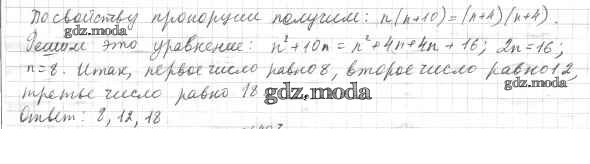 По свойству пропорции получим: n(n+10)=(n+4)(n+4).
gdz.moda
Решаем это уравнение: n²+10n=n²+4n+4n+16; 2n=16;
n=8. Итак, первое число равно 8, второе число равно 12,
gdz.moda
третье число равно 18
gdz.moda
Ответ: 8, 12, 18